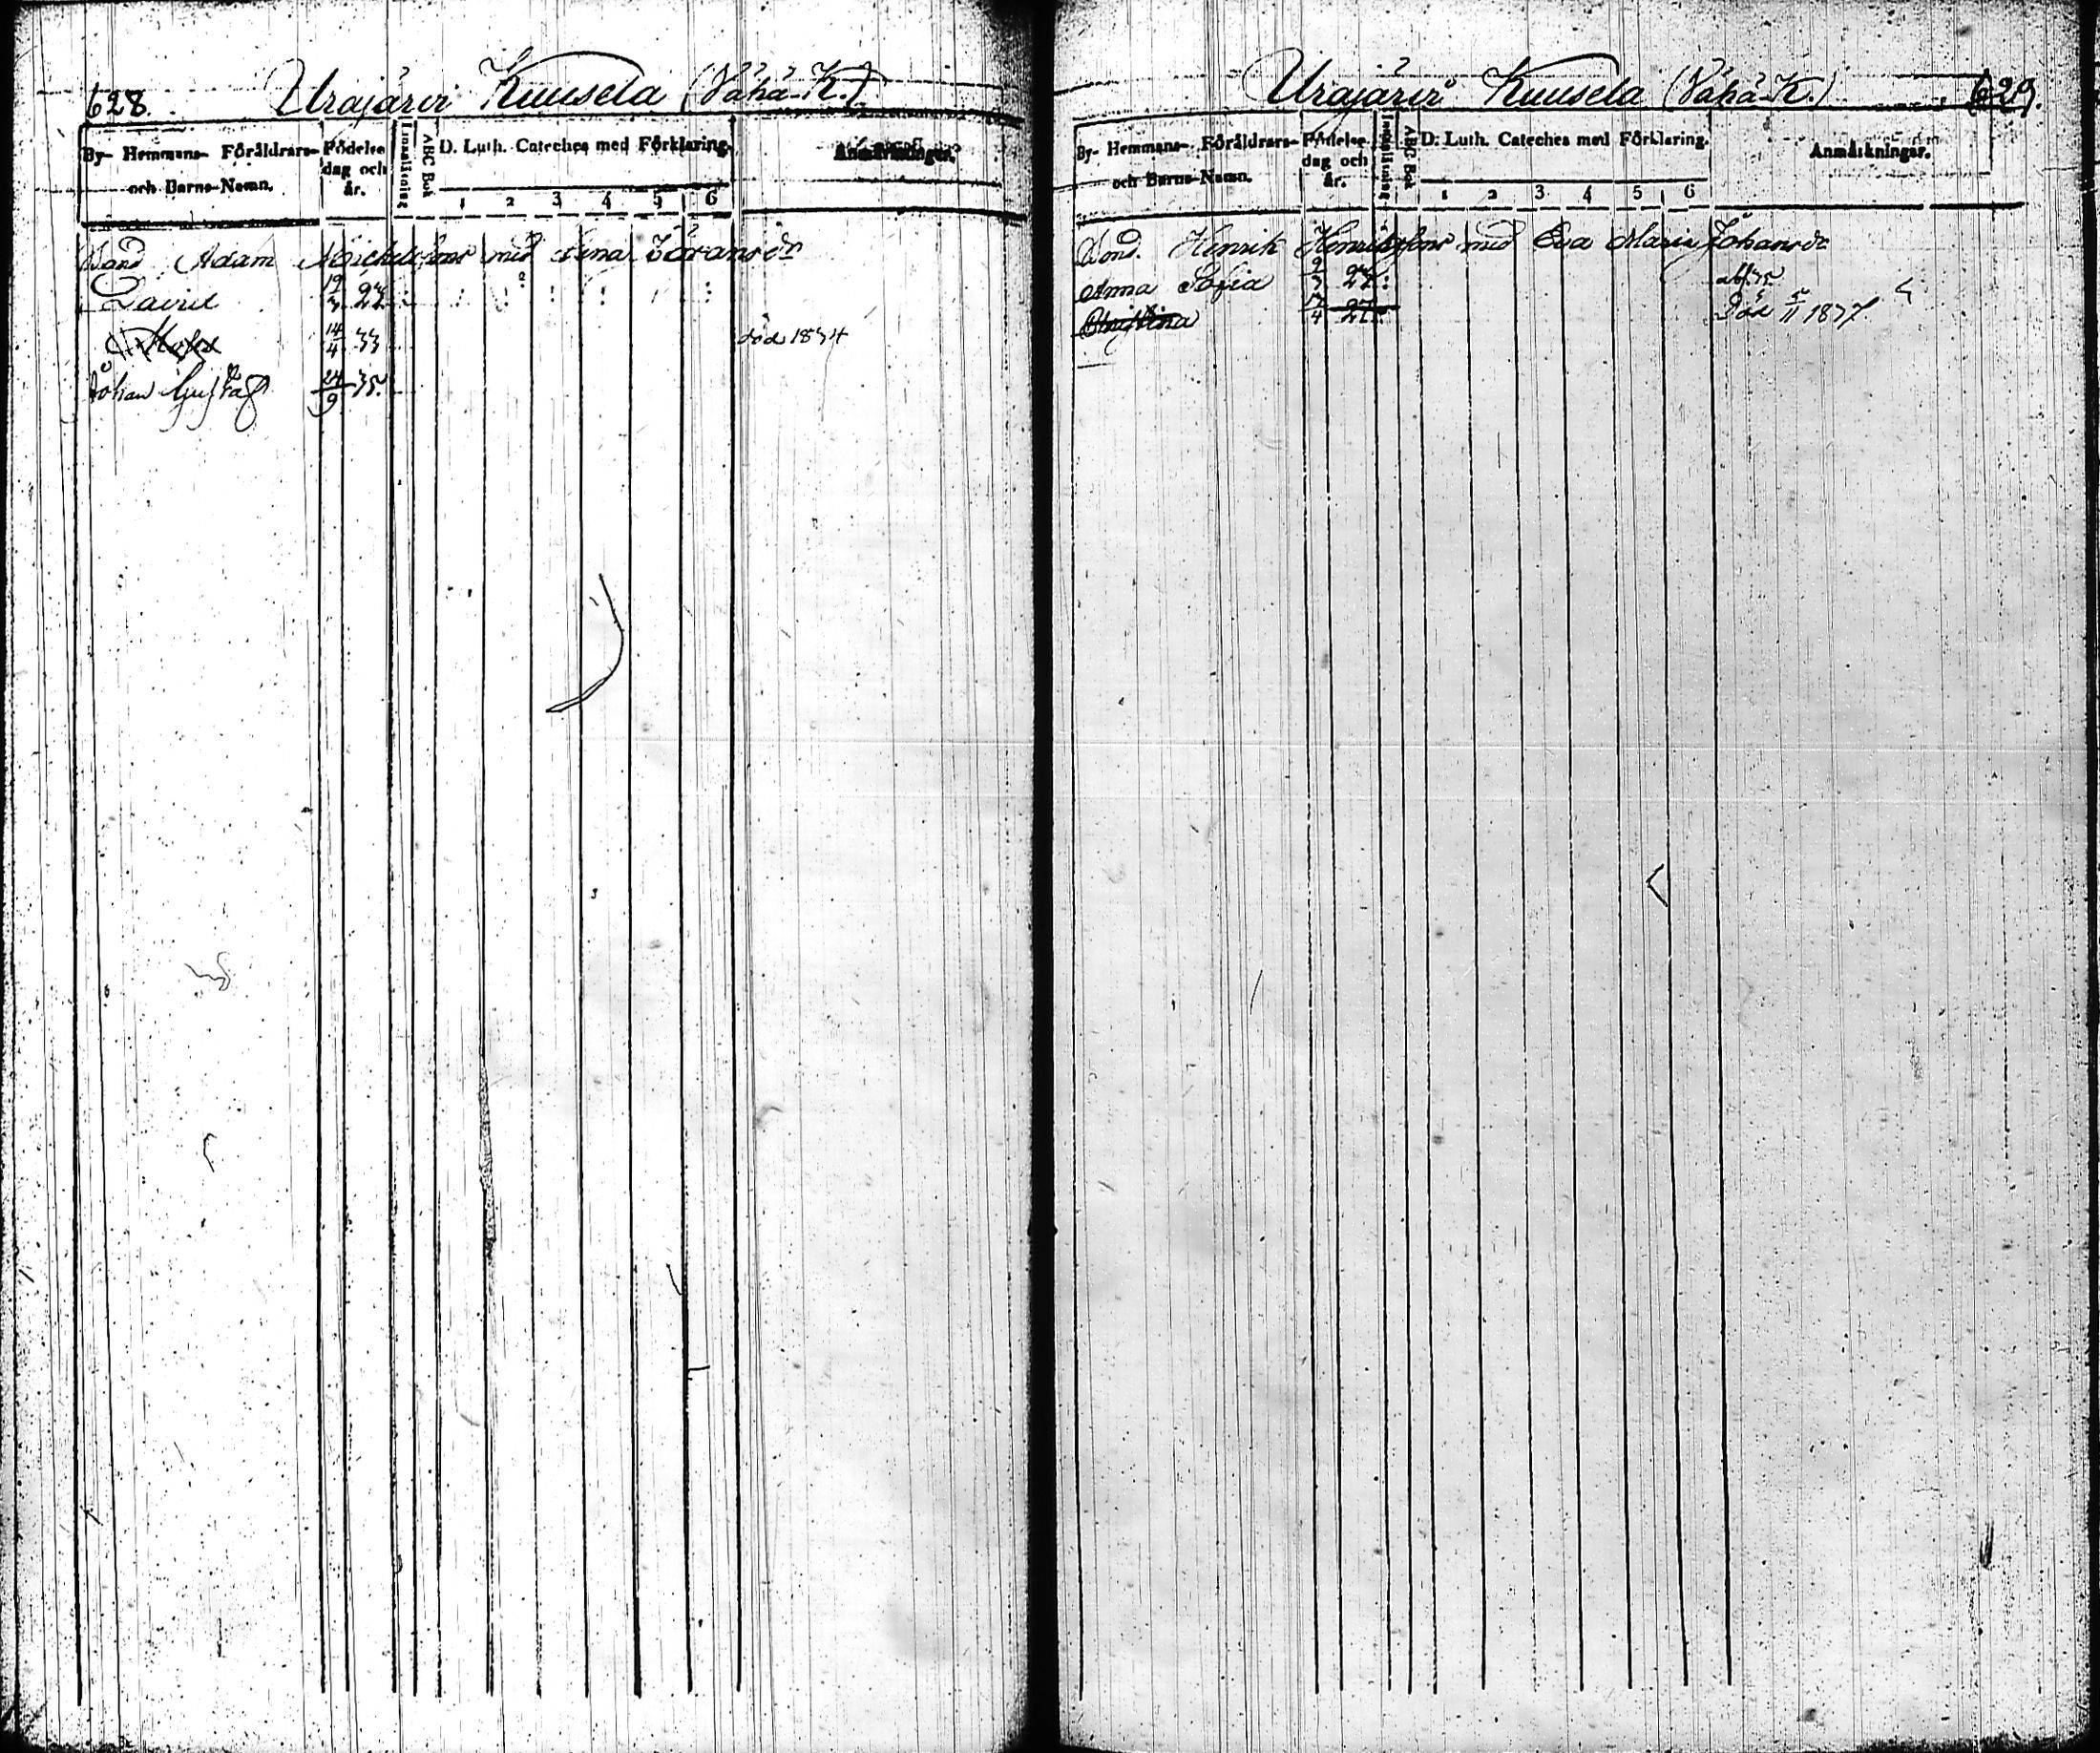 628. Urajärvi Kuusela (Vähä-K.)
By- Hemmans- Föräldrars- och Barns-Namn. Födelse dag och år. Innanläsning ABC Bok D. Luth. Cateches med Förklaring. Anmärkningar.
1 2 3 4 5 6
Bond Adam Michelssons med Lena Göransdr
David 19/3 27
14/4 33 död 1834
Johan Gustaf 24/9 35.
Urajärvi Kuusela (Vähä-K.) 629.
By- Hemmans- Föräldrars- och Barns-Namn. Födelse dag och år. Innanläsning ABC Bok D. Luth. Cateches med Förklaring. Anmärkningar.
1 2 3 4 5 6
Bond. Henrik Henrikssons med Eva Maria Johansdr
Anna Sofia 2/3 27
Christina 17/4 27 Död 5/11 1837